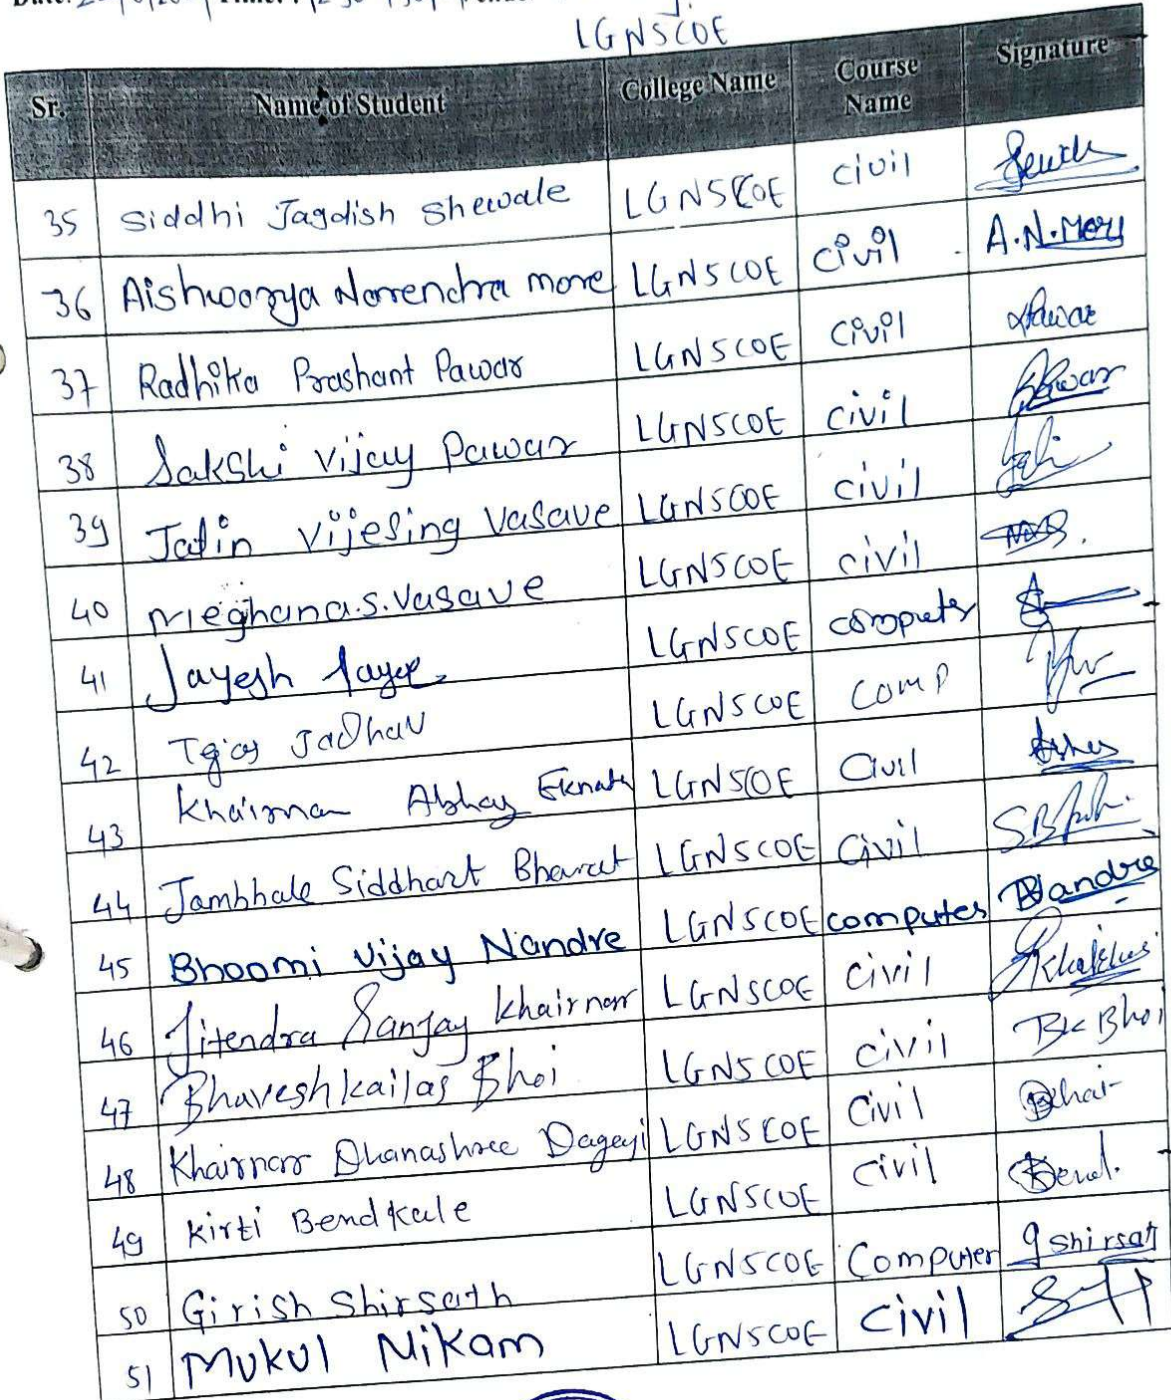 LGNSCOE
Sr. Name of Student College Name Course Name Signature
35 Siddhi Jagdish Shewale LGNSCOE civil
36 Aishwarya Narendra more LGNSCOE civil A.N.More
37 Radhika Prashant Pawar LGNSCOE civil Pawar
38 Sakshi Vijay Pawar LGNSCOE civil Pawar
39 Jatin Vijesing Vasave LGNSCOE civil
40 Meghana.S.Vasave LGNSCOE civil
41 Jayesh LGNSCOE computer
42 Tejas Jadhav LGNSCOE comp
43 Khairnar Abhay Eknath LGNSCOE Civil
44 Jambhale Siddhart Bharat LGNSCOE Civil
45 Bhoomi Vijay Nandre LGNSCOE computer Nandre
46 Jitendra Sanjay Khairnar LGNSCOE civil
47 Bhavesh kailas Bhoi LGNSCOE civil BK Bhoi
48 Khairnar Dhanashree Dageji LGNSCOE Civil
49 Kirti Bendkale LGNSCOE civil
50 Girish Shirsath LGNSCOE Computer gshirsat
51 Mukul Nikam LGNSCOE civil